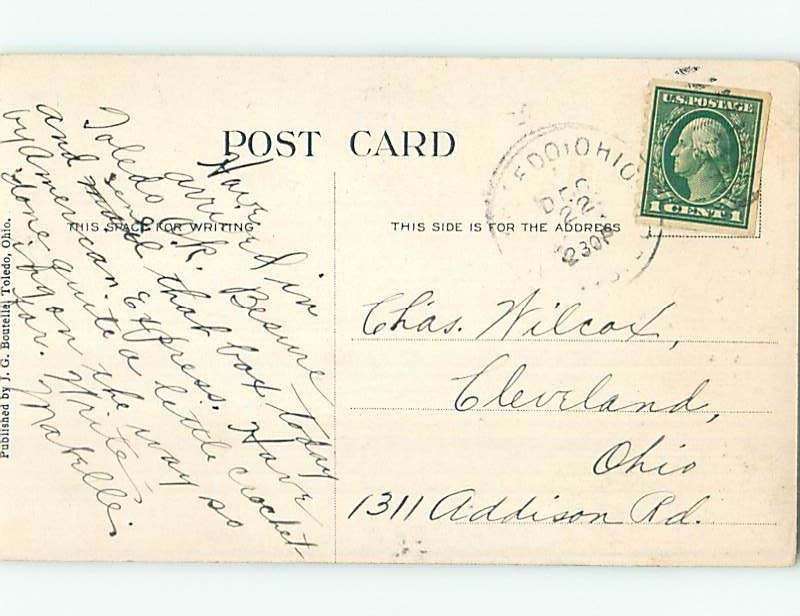 POST CARD
THIS SPACE FOR WRITING
THIS SIDE IS FOR THE ADDRESS
Published by J. G. Boutelle, Toledo, Ohio.
Have
arrived in
Toledo O.K. Besure
and send that box today
by American Express. Have
done quite a little crochet-
ing on the way so
far. Write
Mabelle.
EDO, OHIO
DEC
22
230P
U.S. POSTAGE
1 CENT 1
Chas. Wilcox,
Cleveland,
Ohio
1311 Addison Rd.